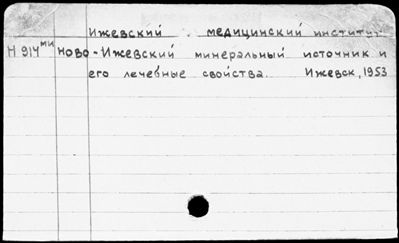 Ижевский медицинский институт
Н 914 ми Ново-Ижевский минеральный источник и
его лечебные свойства. Ижевск, 1953